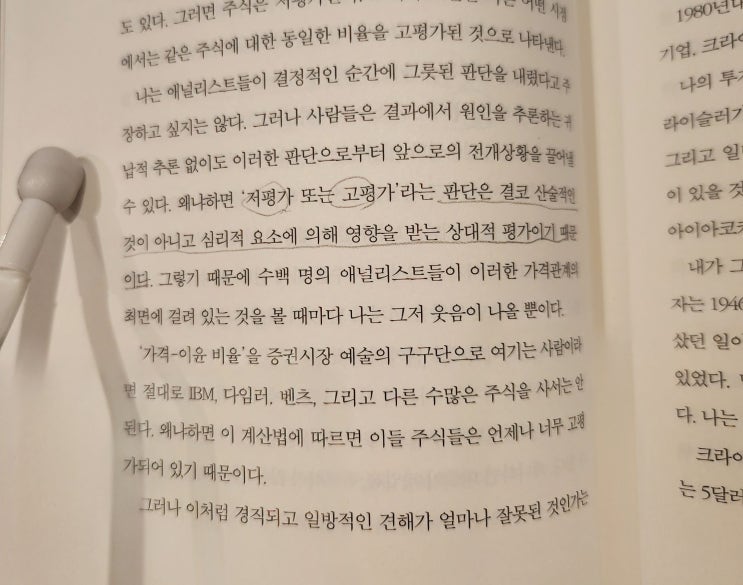 도 있다. 그러면 주식은 어떤 시장
에서는 같은 주식에 대한 동일한 비율을 고평가된 것으로 나타낸다.
나는 애널리스트들이 결정적인 순간에 그릇된 판단을 내렸다고 주
장하고 싶지는 않다. 그러나 사람들은 결과에서 원인을 추론하는 귀
납적 추론 없이도 이러한 판단으로부터 앞으로의 전개상황을 끌어낼
수 있다. 왜냐하면 '저평가 또는 고평가'라는 판단은 결코 산술적인
것이 아니고 심리적 요소에 의해 영향을 받는 상대적 평가이기 때문
이다. 그렇기 때문에 수백 명의 애널리스트들이 이러한 가격관계의
최면에 걸려 있는 것을 볼 때마다 나는 그저 웃음이 나올 뿐이다.
'가격-이윤 비율'을 증권시장 예술의 구구단으로 여기는 사람이라
면 절대로 IBM, 다임러, 벤츠, 그리고 다른 수많은 주식을 사서는 안
된다. 왜냐하면 이 계산법에 따르면 이들 주식들은 언제나 너무 고평
가되어 있기 때문이다.
그러나 이처럼 경직되고 일방적인 견해가 얼마나 잘못된 것인가는
1980년대
기업, 크라이
나의 투자
라이슬러가
그리고 일
이 있을 것
아이아코카
내가 그
자는 1946
샀던 일이
있었다.
다. 나는
크라이
는 5달러